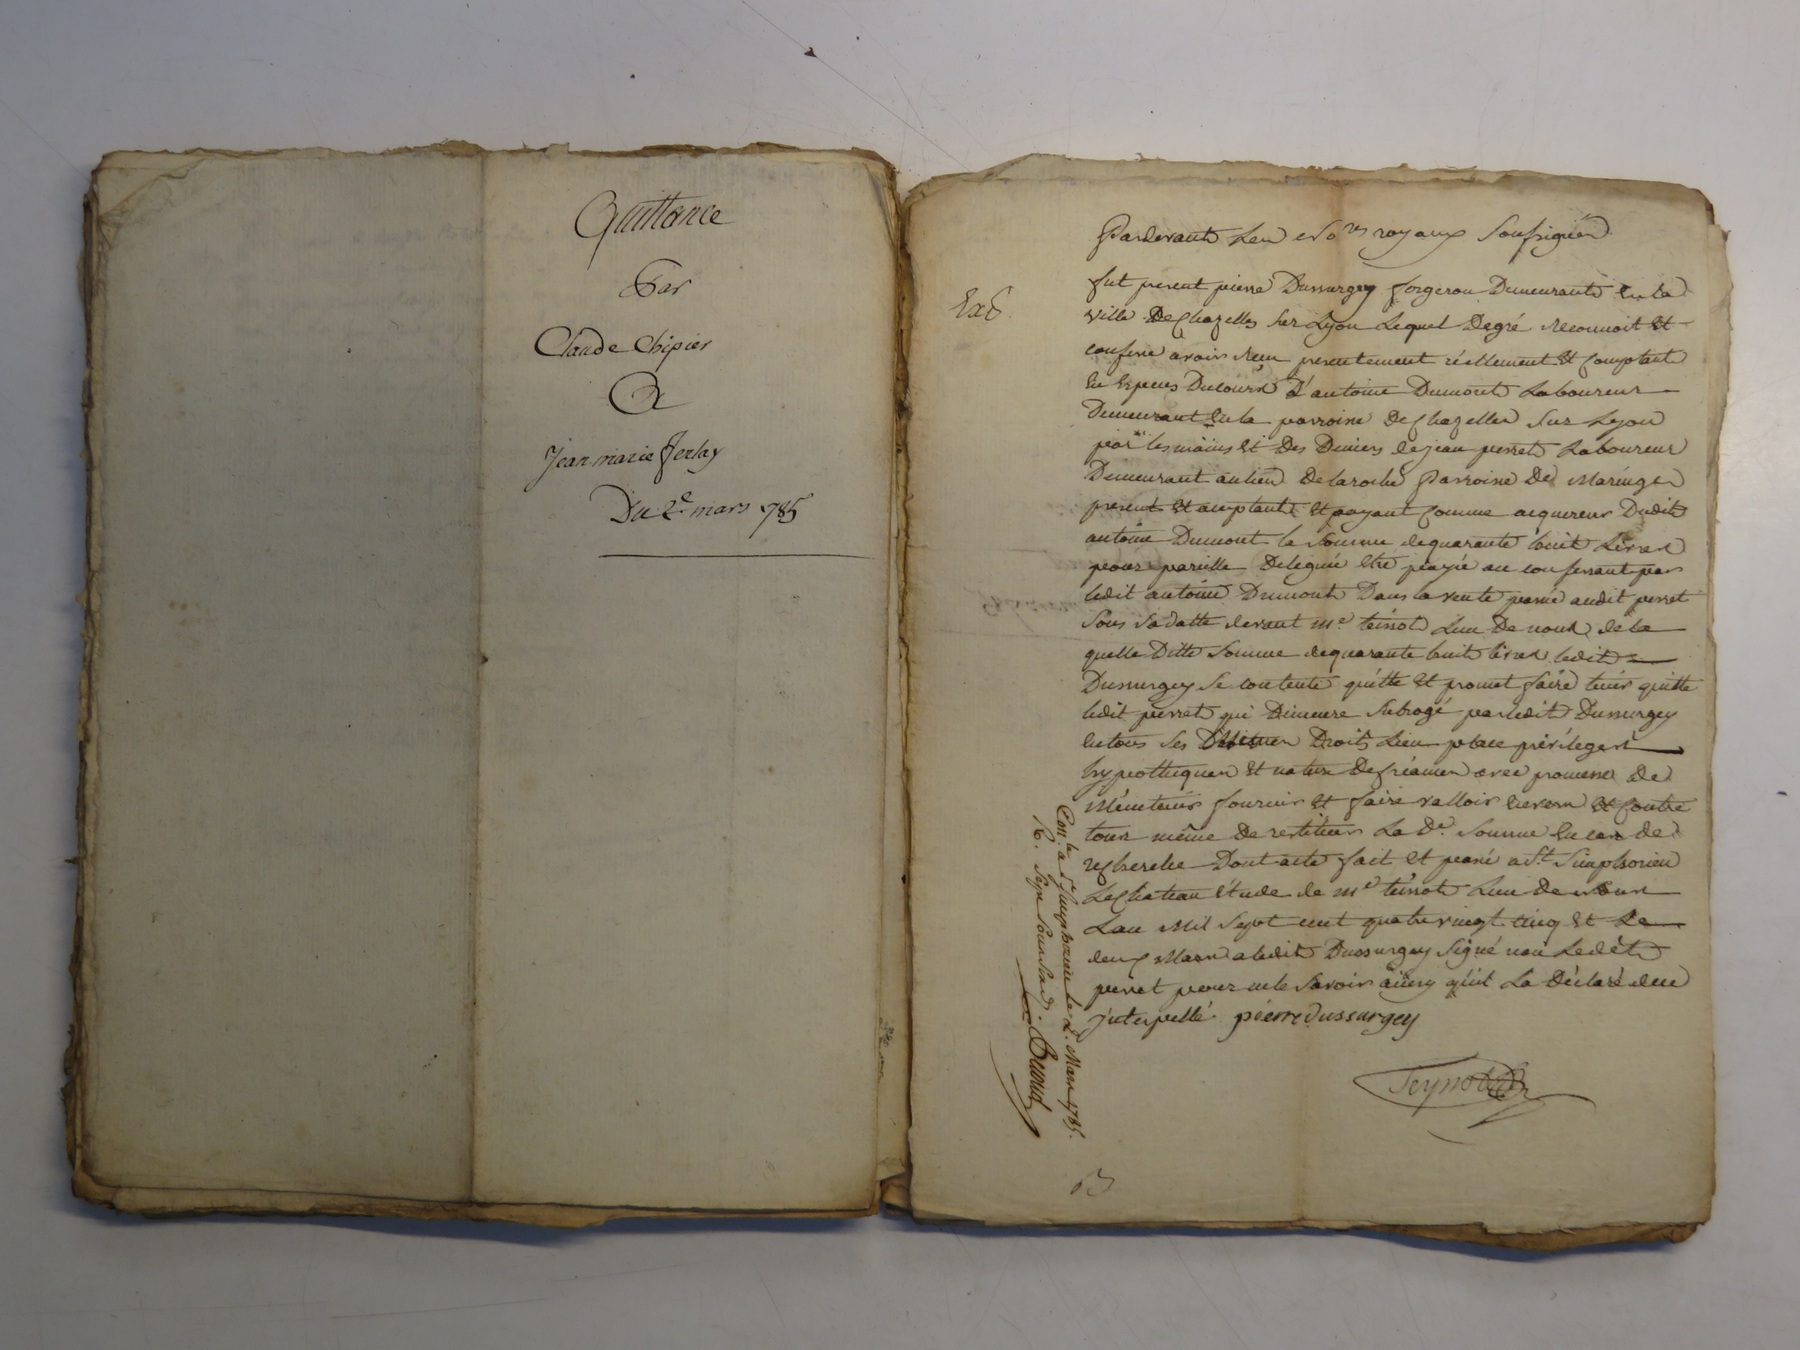 Quittance
Par
Claude Chipier
A
Jean marie ferlay
Du 2e mars 1785
Pardevant Les No.res royaux Soussignés
Exp
fut present pierre Dussurgey forgeron Demeurant En la
ville De Chazelles sur Lyon Lequel Degré reconnoit Et
confesse avoir reçu presentement réellement Et Comptant
En Especes Ducours D'antoine Dumont Laboureur
Demeurant En la parroisse De Chazelles sur Lyon
par les mains Et Des Deniers de jean perret Laboureur
Demeurant au lieu De laroche Parroisse De Maringes
present Et acceptant Et payant Comme acquereur Dudit
antoine Dumont la Somme de quarante huit Livres
pour pareille Deleguée Etre payée au confessant par
ledit antoine Dumont Dans la vente passé audit perret
Sous sa datte devant me. teinot L'un De nous de la
quelle Ditte Somme de quarante huit livres ledit
Dussurgey se contente quitte Et promet faire tenir quitte
ledit perret qui Demeure Subrogé par ledit Dussurgey
En tous ses Droits Lieu place privileges
hypotheques Et nature De Créance avec promesse De
Meintenir fournir Et faire valloir Envers Et Contre
tous même De restituer La De. Somme En cas de
recherche Dont acte fait Et passé a St. Simphorien
Le Chateau Etude de me. teinot L'un de nous
L'an Mil Sept cent quatre vingt cinq Et Le
deux Mars a ledit Dussurgey Signé non Ledit
perret pour ne le Savoir ainsy qu'il La Déclaré de ce
jnterpellé pierre Dussurgey
Teynot
Con.lé a St. simphorien le 2. Mars 1785.
R.